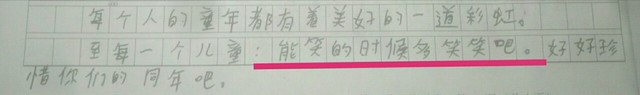 每个人的童年都有着美好的一道彩虹。
至每一个儿童：能笑的时候多笑笑吧。好好珍
惜你们的同年吧。